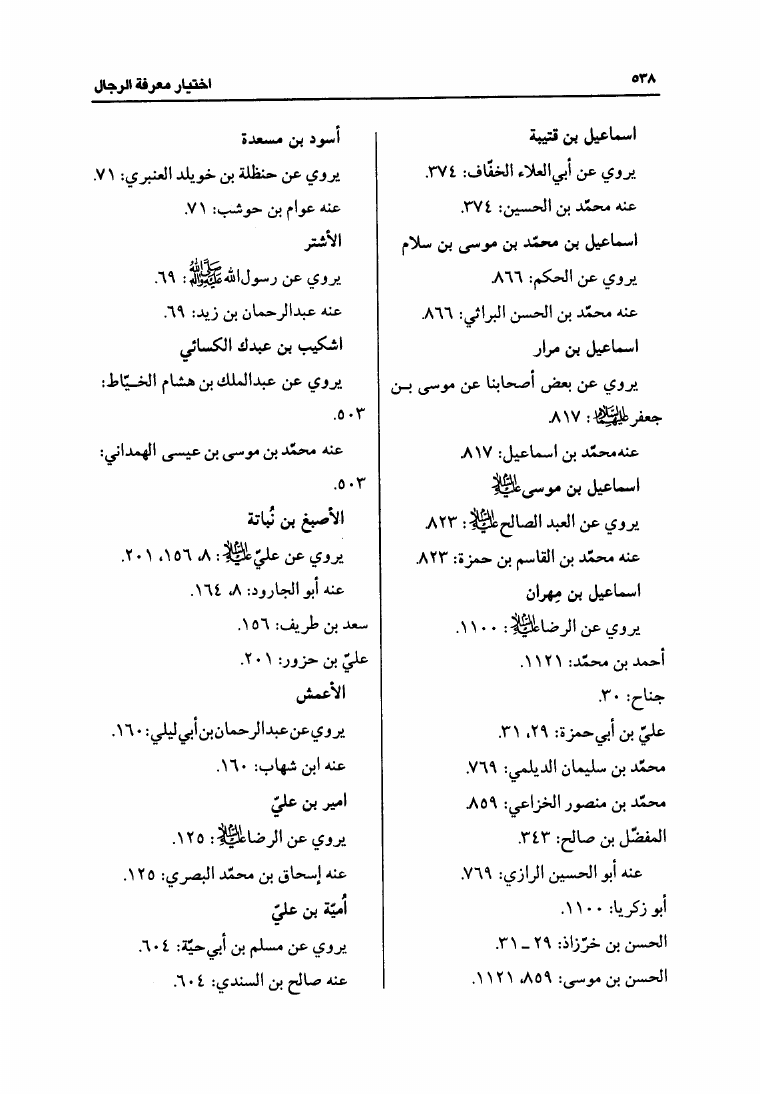 ٥٣٨
اختيار معرفة الرجال
اسماعيل بن قتيبة
يروي عن أبي‌العلاء الخفّاف: ٣٧٤.
عنه محمّد بن الحسين: ٣٧٤.
اسماعيل بن محمّد بن موسى بن سلام
يروي عن الحكم: ٨٦٦.
عنه محمّد بن الحسن البراثي: ٨٦٦.
اسماعيل بن مرار
يروي عن بعض أصحابنا عن موسى بـن
جعفر عليهما السلام: ٨١٧.
عنه‌محمّد بن اسماعيل: ٨١٧.
اسماعيل بن موسى عليه السلام
يروي عن العبد الصالح عليه السلام: ٨٢٣.
عنه محمّد بن القاسم بن حمزة: ٨٢٣.
اسماعيل بن مِهران
يروي عن الرضا عليه السلام: ١١٠٠.
أحمد بن محمّد: ١١٢١.
جناح: ٣٠.
عليّ بن أبي‌حمزة: ٢٩، ٣١.
محمّد بن سليمان الديلمي: ٧٦٩.
محمّد بن منصور الخزاعي: ٨٥٩.
المفضّل بن صالح: ٣٤٣.
عنه أبو الحسين الرازي: ٧٦٩.
أبو زكريا: ١١٠٠.
الحسن بن خرّزاذ: ٢٩ ـ ٣١.
الحسن بن موسى: ٨٥٩، ١١٢١.
أسود بن مسعدة
يروي عن حنظلة بن خويلد العنبري: ٧١.
عنه عوام بن حوشب: ٧١.
الأشتر
يروي عن رسول‌الله ﷺ: ٦٩.
عنه عبدالرحمان بن زيد: ٦٩.
اشكيب بن عبدك الكسائي
يروي عن عبدالملك بن هشام الخـيّاط:
٥٠٣.
عنه محمّد بن موسى بن عيسى الهمداني:
٥٠٣.
الأصبغ بن نُباتة
يروي عن عليّ عليه السلام: ٨، ١٥٦، ٢٠١.
عنه أبو الجارود: ٨، ١٦٤.
سعد بن طريف: ١٥٦.
عليّ بن حزور: ٢٠١.
الأعمش
يروي‌عن‌عبدالرحمان‌بن‌أبي‌ليلي: ١٦٠.
عنه ابن شهاب: ١٦٠.
امير بن عليّ
يروي عن الرضا عليه السلام: ١٢٥.
عنه إسحاق بن محمّد البصري: ١٢٥.
أُميّة بن عليّ
يروي عن مسلم بن أبي‌حيّة: ٦٠٤.
عنه صالح بن السندي: ٦٠٤.